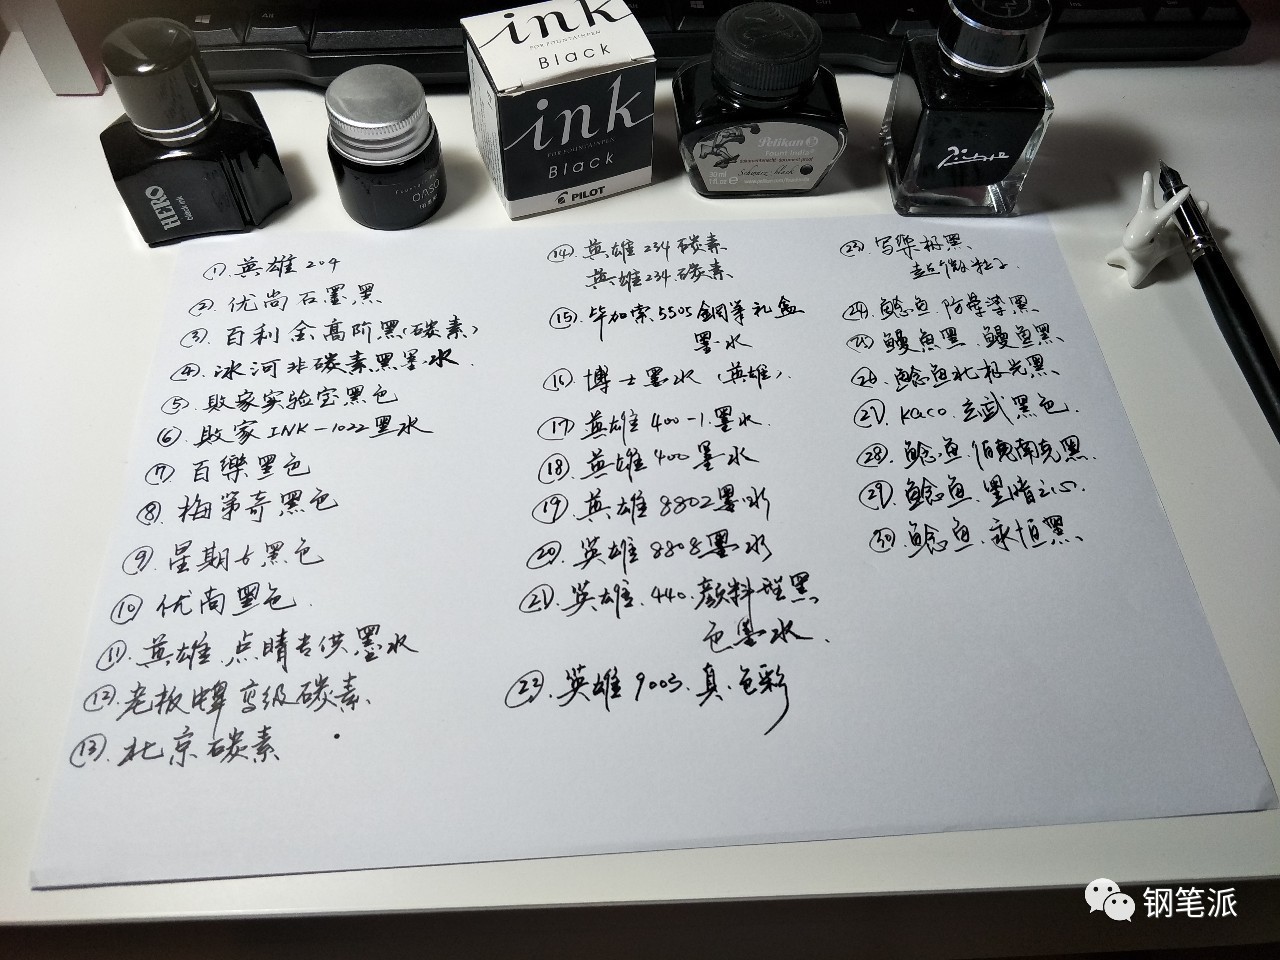 ink
FOR FOUNTAIN PEN
Black
ink
FOR FOUNTAIN PEN
Black
PILOT
HERO
black ink
OASO
Pelikan
Fount India
30 ml
1 fl oz
Schwarz black
Picasso
① 英雄 204
② 优尚石墨黑
③ 百利金高阶黑(碳素)
④ 冰河非碳素黑墨水.
⑤ 败家实验室黑色
⑥ 败家INK-1022墨水
⑦ 百樂黑色
⑧ 梅笫奇黑色
⑨ 星期六黑色
⑩ 优尚黑色.
⑪ 英雄.点睛专供墨水
⑫ 老板牌高级碳素.
⑬ 北京碳素
⑭ 英雄234碳素
英雄234碳素
⑮ 毕加索5505鋼笔礼盒
墨水
⑯ 博士墨水(英雄).
⑰ 英雄400-1.墨水.
⑱ 英雄400墨水
⑲ 英雄8802墨水
⑳ 英雄8808墨水
㉑ 英雄.440.颜料型黑
色墨水.
㉒ 英雄9003.真.色彩
㉓ 写樂极黑
超微粒子.
㉔ 鲶鱼.防晕染黑
㉕ 鰻魚黑.鳗鱼黑
㉖ 鲶鱼北极光黑
㉗ kaco.玄武黑色.
㉘ 鲶鱼.伯克南克黑.
㉙ 鲶鱼.墨暗之心.
㉚ 鲶鱼.永恒黑.
钢笔派